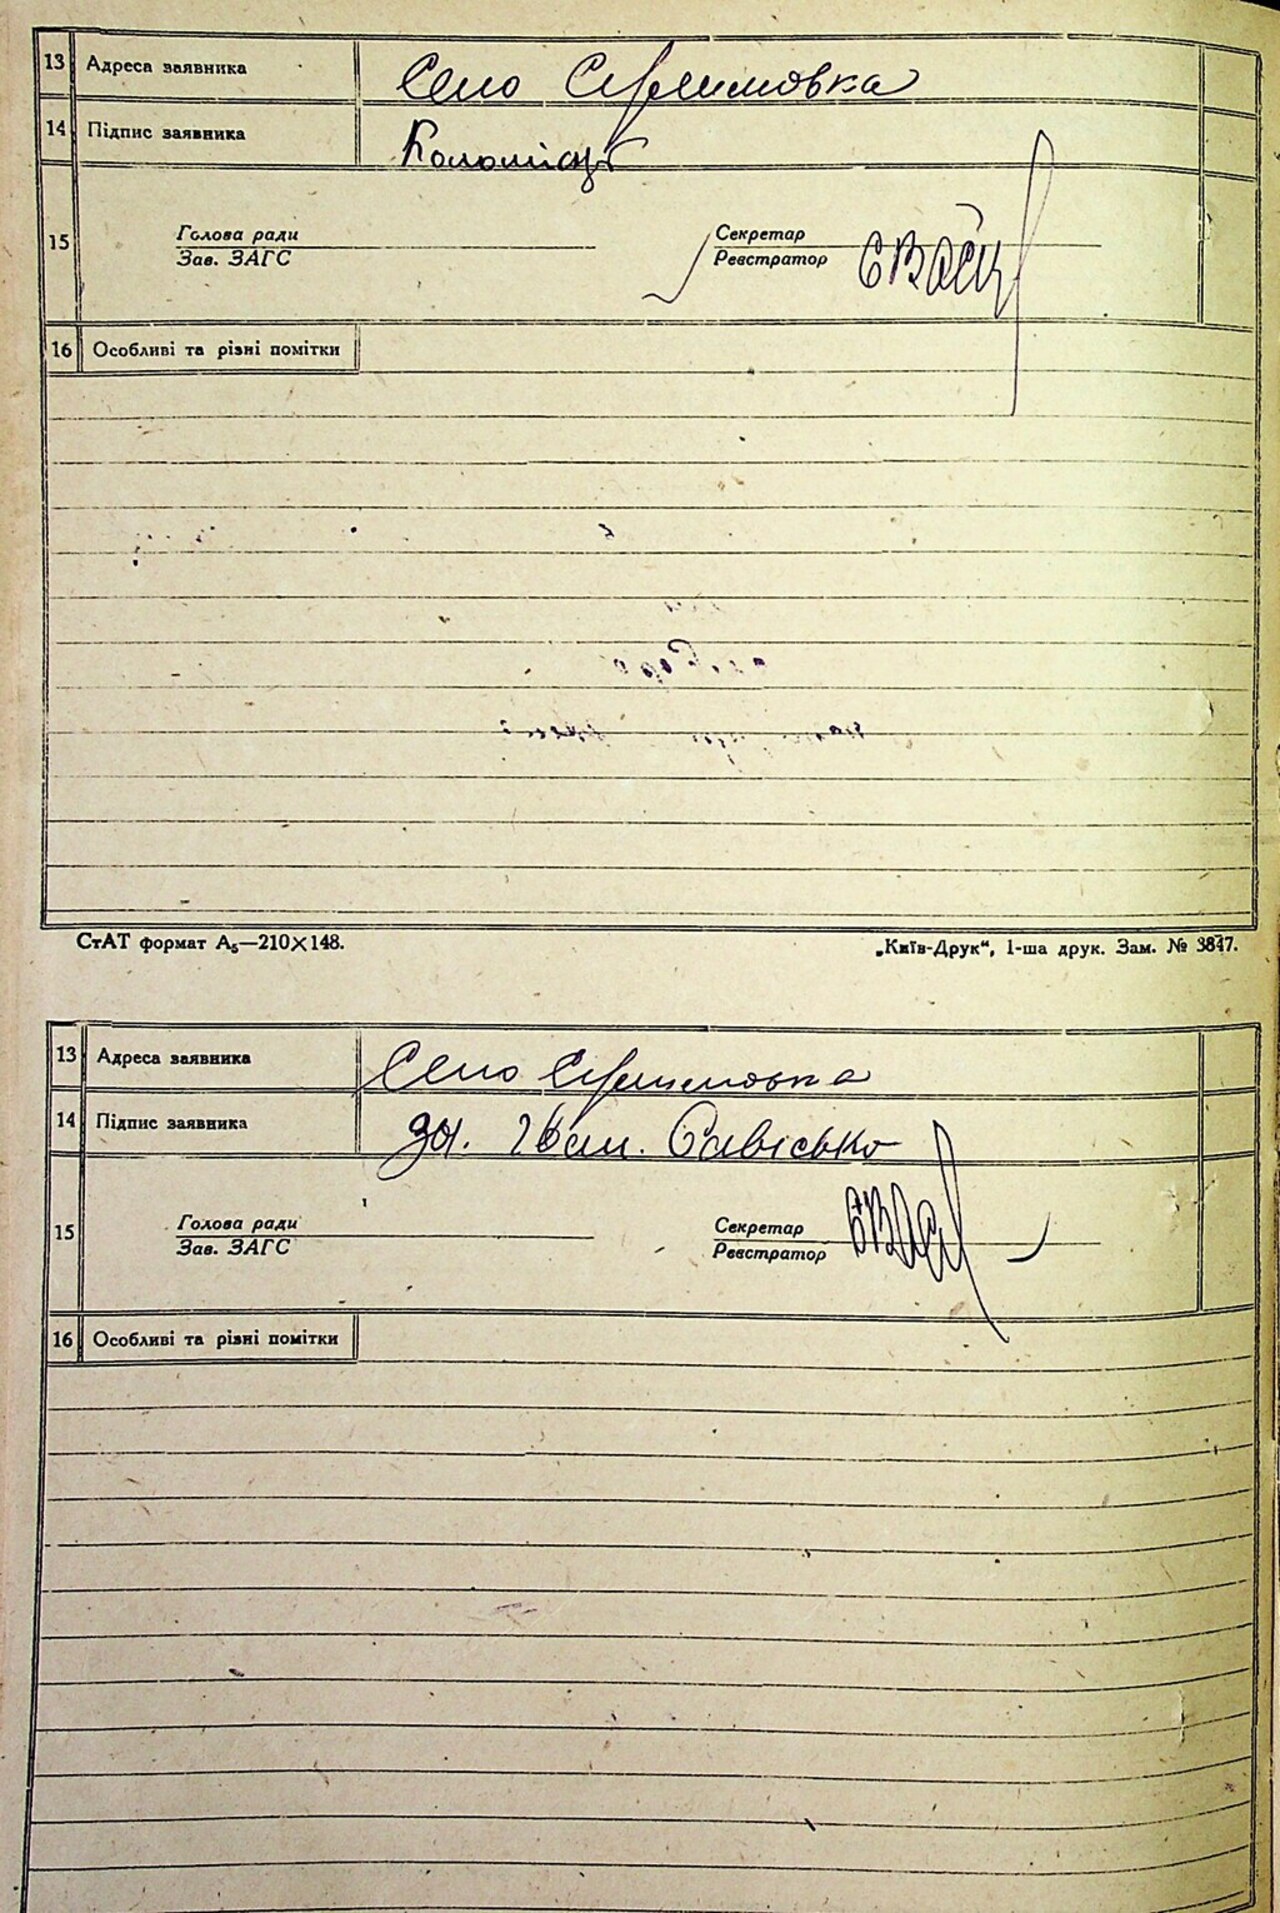 13 Адреса заявника Село Єфремовка
14 Підпис заявника Коломієць
15 Голова ради Секретар
Зав. ЗАГС Реєстратор
16 Особливі та різні помітки
СтАТ формат А₅—210×148. „Київ-Друк“, 1-ша друк. Зам. № 3847.
13 Адреса заявника Село
14 Підпис заявника за. Іван.
15 Голова ради Секретар
Зав. ЗАГС Реєстратор
16 Особливі та різні помітки